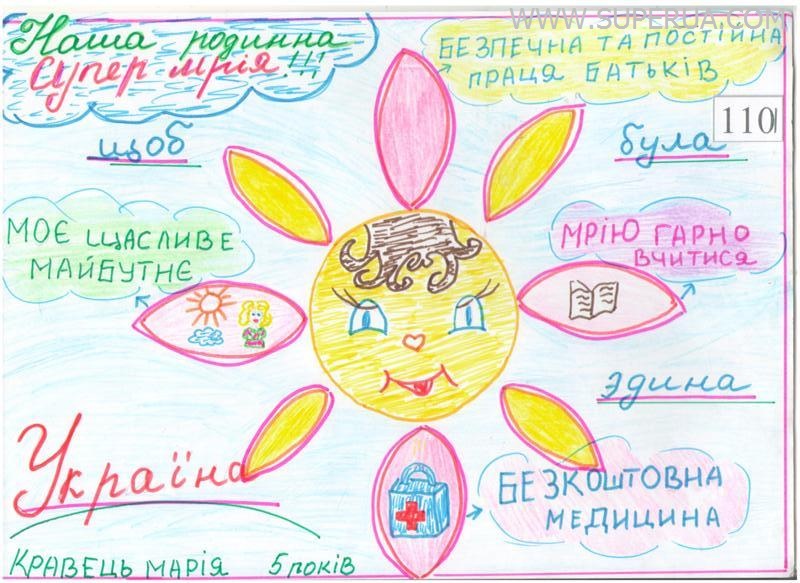 WWW.SUPERUA.COM
Наша родинна
Супер мрія!!!
БЕЗПЕЧНА ТА ПОСТІЙНА
ПРАЦЯ БАТЬКІВ
110
щоб
була
МОЄ ЩАСЛИВЕ
МАЙБУТНЄ
МРІЮ ГАРНО
ВЧИТИСЯ
єдина
Україна
БЕЗКОШТОВНА
МЕДИЦИНА
КРАВЕЦЬ МАРІЯ 5 років